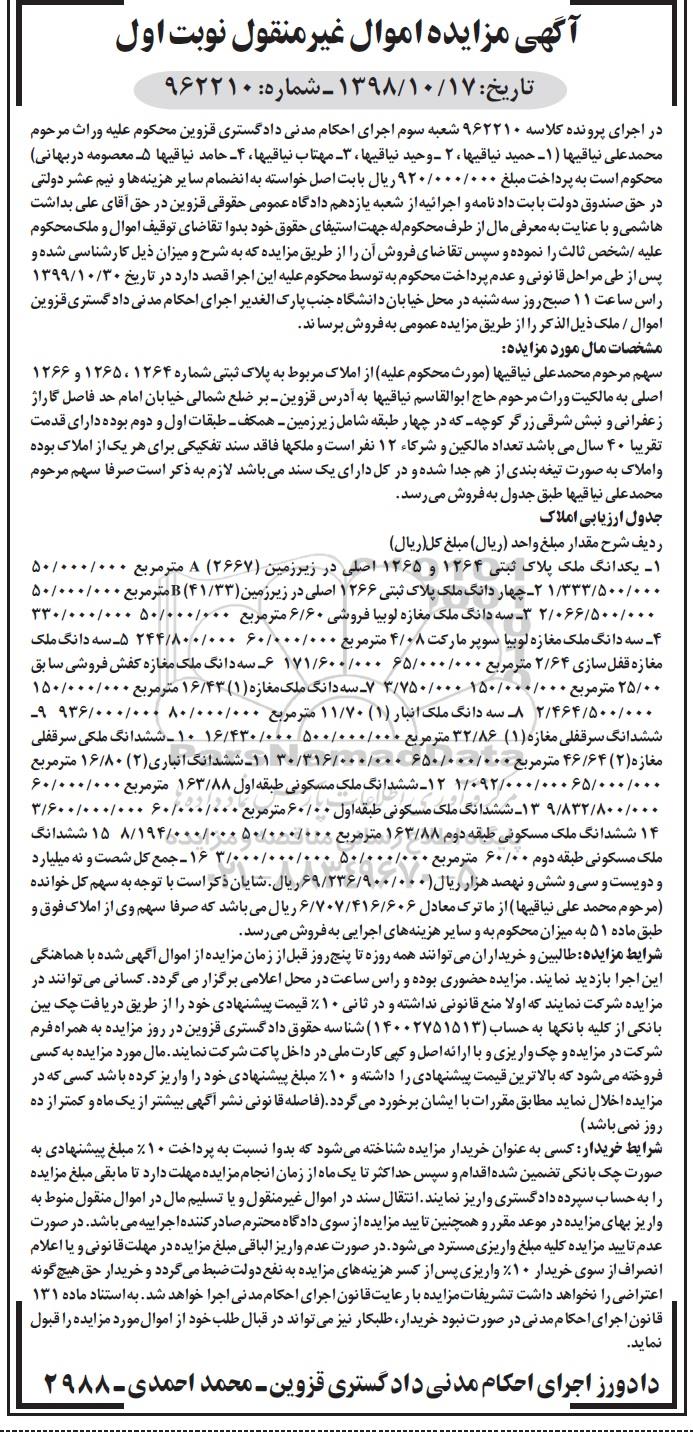 آگهی مزایده اموال غیرمنقول نوبت اول
تاریخ: ۱۳۹۸/۱۰/۱۷ ـ شماره: ۹۶۲۲۱۰
در اجرای پرونده کلاسه ۹۶۲۲۱۰ شعبه سوم اجرای احکام مدنی دادگستری قزوین محکوم علیه وراث مرحوم
محمدعلی نیاقیها (۱ـ حمید نیاقیها، ۲ ـ وحید نیاقیها، ۳ـ مهتاب نیاقیها، ۴ـ حامد نیاقیها ۵ـ معصومه دربهانی)
محکوم است به پرداخت مبلغ ۹۲۰/۰۰۰/۰۰۰ ریال بابت اصل خواسته به انضمام سایر هزینه‌ها و نیم عشر دولتی
در حق صندوق دولت بابت دادنامه و اجرائیه از شعبه یازدهم دادگاه عمومی حقوقی قزوین در حق آقای علی بداشت
هاشمی و با عنایت به معرفی مال از طرف محکوم‌له جهت استیفای حقوق خود بدوا تقاضای توقیف اموال و ملک محکوم
علیه /شخص ثالث را نموده و سپس تقاضای فروش آن را از طریق مزایده که به شرح و میزان ذیل کارشناسی شده و
پس از طی مراحل قانونی و عدم پرداخت محکوم به توسط محکوم علیه این اجرا قصد دارد در تاریخ ۱۳۹۹/۱۰/۳۰
راس ساعت ۱۱ صبح روز سه شنبه در محل خیابان دانشگاه جنب پارک الغدیر اجرای احکام مدنی دادگستری قزوین
اموال / ملک ذیل‌الذکر را از طریق مزایده عمومی به فروش برساند.
مشخصات مال مورد مزایده:
سهم مرحوم محمدعلی نیاقیها (مورث محکوم علیه) از املاک مربوط به پلاک ثبتی شماره ۱۲۶۴ ، ۱۲۶۵ و ۱۲۶۶
اصلی به مالکیت وراث مرحوم حاج ابوالقاسم نیاقیها به آدرس قزوین ـ بر ضلع شمالی خیابان امام حد فاصل گاراژ
زعفرانی و نبش شرقی زرگر کوچه ـ که در چهار طبقه شامل زیرزمین ـ همکف ـ طبقات اول و دوم بوده دارای قدمت
تقریبا ۴۰ سال می باشد تعداد مالکین و شرکاء ۱۲ نفر است و ملکها فاقد سند تفکیکی برای هر یک از املاک بوده
و املاک به صورت تیغه بندی از هم جدا شده و در کل دارای یک سند می باشد لازم به ذکر است صرفا سهم مرحوم
محمدعلی نیاقیها طبق جدول به فروش می‌رسد.
جدول ارزیابی املاک
ردیف شرح مقدار مبلغ واحد (ریال) مبلغ کل(ریال)
۱ـ یکدانگ ملک پلاک ثبتی ۱۲۶۴ و ۱۲۶۵ اصلی در زیرزمین (۲۶۶۷) A مترمربع ۵۰/۰۰۰/۰۰۰
۱/۳۳۳/۵۰۰/۰۰۰ ۲ـ چهار دانگ ملک پلاک ثبتی ۱۲۶۶ اصلی در زیرزمین (۴۱/۳۳) B مترمربع ۵۰/۰۰۰/۰۰۰
۲/۰۶۶/۵۰۰/۰۰۰ ۳ـ سه دانگ ملک مغازه لوبیا فروشی ۶/۶۰ مترمربع ۵۰/۰۰۰/۰۰۰ ۳۳۰/۰۰۰/۰۰۰
۴ـ سه دانگ ملک مغازه لوبیا سوپر مارکت ۴/۰۸ مترمربع ۶۰/۰۰۰/۰۰۰ ۲۴۴/۸۰۰/۰۰۰ ۵ـ سه دانگ ملک
مغازه قفل سازی ۲/۶۴ مترمربع ۶۵/۰۰۰/۰۰۰ ۱۷۱/۶۰۰/۰۰۰ ۶ـ سه دانگ ملک مغازه کفش فروشی سابق
۲۵/۰۰ مترمربع ۱۵۰/۰۰۰/۰۰۰ ۳/۷۵۰/۰۰۰ ۷ـ سه دانگ ملک مغازه (۱) ۱۶/۴۳ مترمربع ۱۵۰/۰۰۰/۰۰۰
۲/۴۶۴/۵۰۰/۰۰۰ ۸ـ سه دانگ ملک انبار (۱) ۱۱/۷۰ مترمربع ۸۰/۰۰۰/۰۰۰ ۹۳۶/۰۰۰/۰۰۰ ۹ـ
ششدانگ سرقفلی مغازه (۱) ۳۲/۸۶ مترمربع ۵۰۰/۰۰۰/۰۰۰ ۱۶/۴۳۰/۰۰۰ ۱۰ ـ ششدانگ ملکی سرقفلی
مغازه (۲) ۴۶/۶۴ مترمربع ۶۵۰/۰۰۰/۰۰۰ ۳۰/۳۱۶/۰۰۰/۰۰۰ ۱۱ـ ششدانگ انباری (۲) ۱۶/۸۰ مترمربع
۶۵/۰۰۰/۰۰۰ ۱/۰۹۲/۰۰۰/۰۰۰ ۱۲ـ ششدانگ ملک مسکونی طبقه اول ۱۶۳/۸۸ مترمربع ۶۰/۰۰۰/۰۰۰
۹/۸۳۲/۸۰۰/۰۰۰ ۱۳ـ ششدانگ ملک مسکونی طبقه اول ۶۰/۰۰ مترمربع ۶۰/۰۰۰/۰۰۰ ۳/۶۰۰/۰۰۰/۰۰۰
۱۴ ششدانگ ملک مسکونی طبقه دوم ۱۶۳/۸۸ مترمربع ۵۰/۰۰۰/۰۰۰ ۸/۱۹۴/۰۰۰/۰۰۰ ۱۵ ششدانگ
ملک مسکونی طبقه دوم ۶۰/۰۰ مترمربع ۵۰/۰۰۰/۰۰۰ ۳/۰۰۰/۰۰۰/۰۰۰ ۱۶ ـ جمع کل شصت و نه میلیارد
و دویست و سی و شش و نهصد هزار ریال (۶۹/۲۳۶/۹۰۰/۰۰۰ ریال. شایان ذکر است با توجه به سهم کل خوانده
(مرحوم محمد علی نیاقیها) از ماترک معادل ۶/۷۰۷/۴۱۶/۶۰۶ ریال می باشد که صرفا سهم وی از املاک فوق و
طبق ماده ۵۱ به میزان محکوم به و سایر هزینه‌های اجرایی به فروش می‌رسد.
شرایط مزایده: طالبین و خریداران می‌توانند همه روزه تا پنج روز قبل از زمان مزایده از اموال آگهی شده با هماهنگی
این اجرا بازدید نمایند. مزایده حضوری بوده و راس ساعت در محل اعلامی برگزار می گردد. کسانی می‌توانند در
مزایده شرکت نمایند که اولا منع قانونی نداشته و در ثانی ۱۰٪ قیمت پیشنهادی خود را از طریق دریافت چک بین
بانکی از کلیه بانکها به حساب (۱۴۰۰۲۷۵۱۵۱۳) شناسه حقوق دادگستری قزوین در روز مزایده به همراه فرم
شرکت در مزایده و چک واریزی و با ارائه اصل و کپی کارت ملی در داخل پاکت شرکت نمایند. مال مورد مزایده به کسی
فروخته می‌شود که بالاترین قیمت پیشنهادی را داشته و ۱۰٪ مبلغ پیشنهادی خود را واریز کرده باشد کسی که در
مزایده اخلال نماید مطابق مقررات با ایشان برخورد می گردد. (فاصله قانونی نشر آگهی بیشتر از یک ماه و کمتر از ده
روز نمی باشد)
شرایط خریدار: کسی به عنوان خریدار مزایده شناخته می‌شود که بدوا نسبت به پرداخت ۱۰٪ مبلغ پیشنهادی به
صورت چک بانکی تضمین شده اقدام و سپس حداکثر تا یک ماه از زمان انجام مزایده مهلت دارد تا مابقی مبلغ مزایده
را به حساب سپرده دادگستری واریز نمایند. انتقال سند در اموال غیرمنقول و یا تسلیم مال در اموال منقول منوط به
واریز بهای مزایده در موعد مقرر و همچنین تایید مزایده از سوی دادگاه محترم صادرکننده اجراییه می باشد. در صورت
عدم تایید مزایده کلیه مبلغ واریزی مسترد می‌شود. در صورت عدم واریز الباقی مبلغ مزایده در مهلت قانونی و یا اعلام
انصراف از سوی خریدار ۱۰٪ واریزی پس از کسر هزینه‌های مزایده به نفع دولت ضبط می گردد و خریدار حق هیچ گونه
اعتراضی را نخواهد داشت تشریفات مزایده با رعایت قانون اجرای احکام مدنی اجرا خواهد شد. به استناد ماده ۱۳۱
قانون اجرای احکام مدنی در صورت نبود خریدار، طلبکار نیز می‌تواند در قبال طلب خود از اموال مورد مزایده را قبول
نماید.
دادورز اجرای احکام مدنی دادگستری قزوین ـ محمد احمدی ـ ۲۹۸۸
ParsNamadData